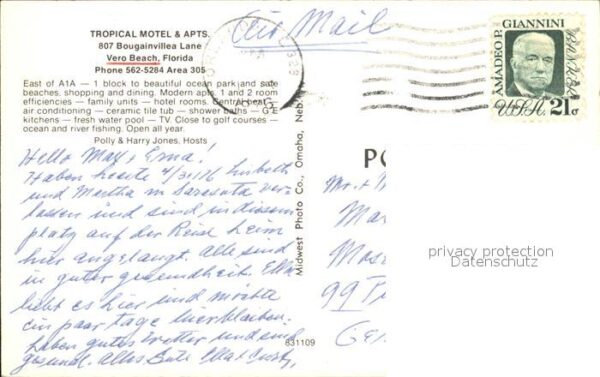 TROPICAL MOTEL & APTS.
807 Bougainvillea Lane
Vero Beach, Florida
Phone 562-5284 Area 305
East of A1A — 1 block to beautiful ocean park and safe
beaches, shopping and dining. Modern apts. 1 and 2 room
efficiencies — family units — hotel rooms. Central heat
air conditioning — ceramic tile tub — shower baths — G.E
kitchens — fresh water pool — TV. Close to golf courses —
ocean and river fishing. Open all year.
Polly & Harry Jones, Hosts
Air Mail
AMADEO P. GIANNINI
BANKER
U.S.A. 21c
Hello May + Erna!
Haben heute
und Martha in Sarasota ver
lassen und sind in diesem
platz auf der Reise heim
hier angelangt. Alle sind
in guter gesundheit.
liebt es hier und möchte
ein paar tage hier bleiben.
haben gutes Wetter und sind
gesund. Alles Gute
Midwest Photo Co., Omaha, Neb.
831109
PO
Mr. +
Mar
Mos
99
Ger
privacy protection
Datenschutz